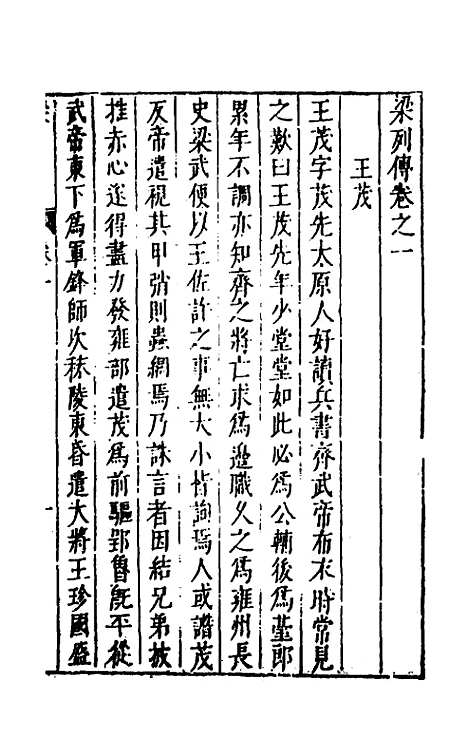 梁列傳卷之一
王茂
王茂字茂先太原人好讀兵書齊武帝布衣時常見
之歎曰王茂先年少堂堂如此必爲公輔後爲臺郎
累年不調亦知齊之將亡求爲邊職久之爲雍州長
史梁武便以王佐許之事無大小皆詢焉人或譖茂
反帝遣視其甲弰則蟲網焉乃誅言者因結兄弟披
推赤心遂得盡力發雍部遣茂爲前驅郢魯旣平從
武帝東下爲軍鋒師次秣陵東昏遣大將王珍國盛